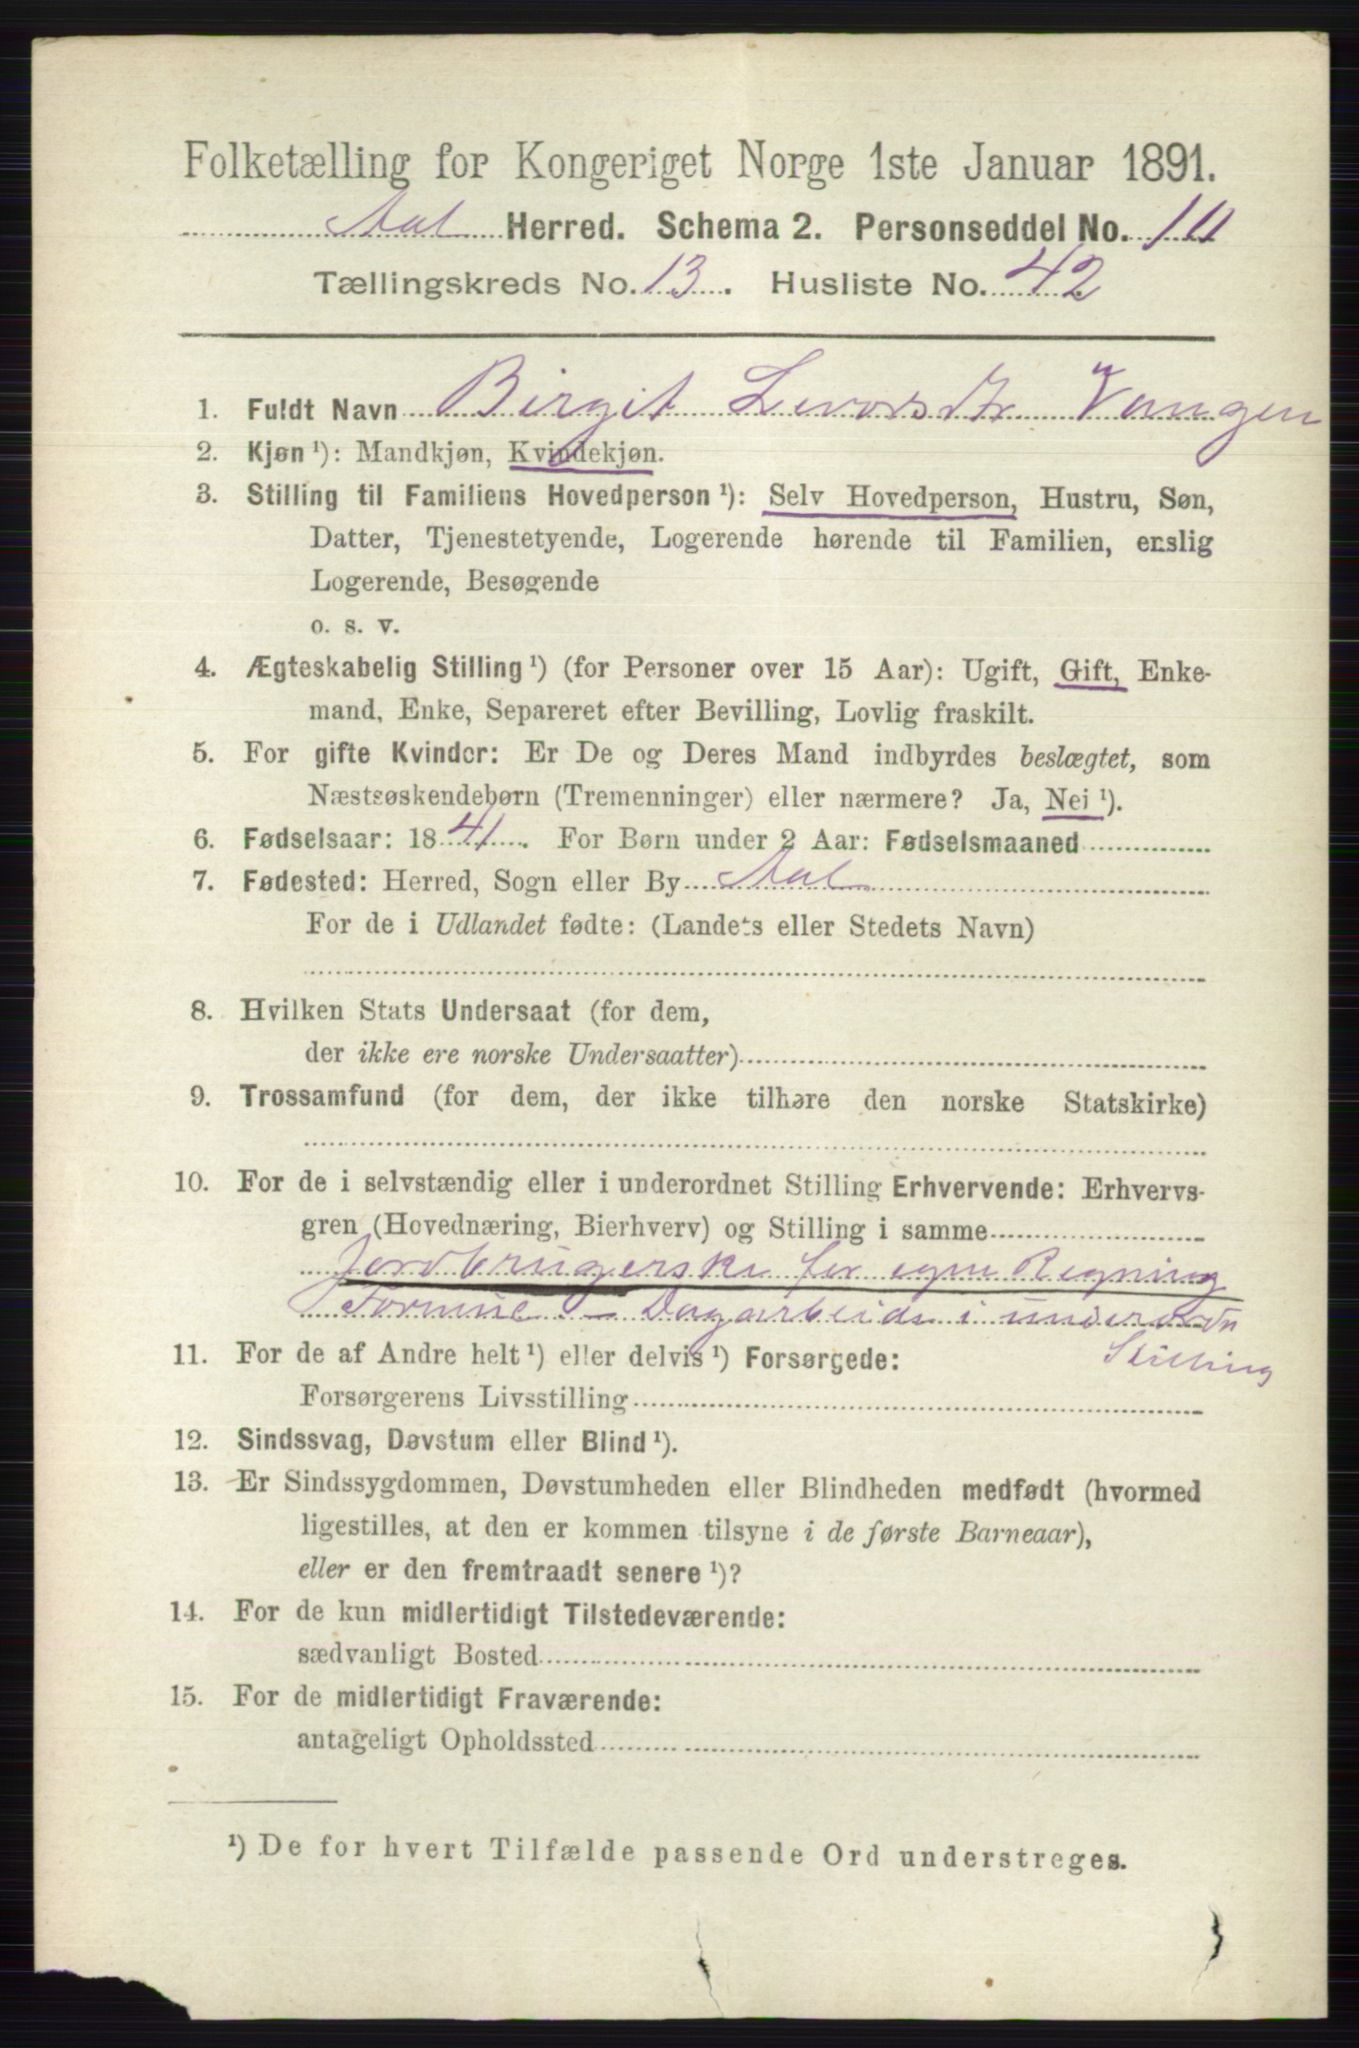 Folketælling for Kongeriget Norge 1ste Januar 1891.
Aal Herred. Schema 2. Personseddel No. 10
Tællingskreds No. 13. Husliste No. 42
1. Fuldt Navn Birgit Levorsdtr Vangen
2. Kjøn ¹): Mandkjøn, Kvindekjøn.
3. Stilling til Familiens Hovedperson ¹): Selv Hovedperson, Hustru, Søn,
Datter, Tjenestetyende, Logerende hørende til Familien, enslig
Logerende, Besøgende
o. s. v.
4. Ægteskabelig Stilling ¹) (for Personer over 15 Aar): Ugift, Gift, Enke-
mand, Enke, Separeret efter Bevilling, Lovlig fraskilt.
5. For gifte Kvinder: Er De og Deres Mand indbyrdes beslægtet, som
Næstsøskendebørn (Tremenninger) eller nærmere? Ja, Nei ¹).
6. Fødselsaar: 1841. For Børn under 2 Aar: Fødselsmaaned
7. Fødested: Herred, Sogn eller By Aal
For de i Udlandet fødte: (Landets eller Stedets Navn)
8. Hvilken Stats Undersaat (for dem,
der ikke ere norske Undersaatter)
9. Trossamfund (for dem, der ikke tilhøre den norske Statskirke)
10. For de i selvstændig eller i underordnet Stilling Erhvervende: Erhvervs-
gren (Hovednæring, Bierhverv) og Stilling i samme
Jordbrugerske for egen Regning
Dagarbeide i underordn
Stilling
11. For de af Andre helt ¹) eller delvis ¹) Forsørgede:
Forsørgerens Livsstilling
12. Sindssvag, Døvstum eller Blind ¹).
13. Er Sindssygdommen, Døvstumheden eller Blindheden medfødt (hvormed
ligestilles, at den er kommen tilsyne i de første Barneaar),
eller er den fremtraadt senere ¹)?
14. For de kun midlertidigt Tilstedeværende:
sædvanligt Bosted
15. For de midlertidigt Fraværende:
antageligt Opholdssted
¹) De for hvert Tilfælde passende Ord understreges.